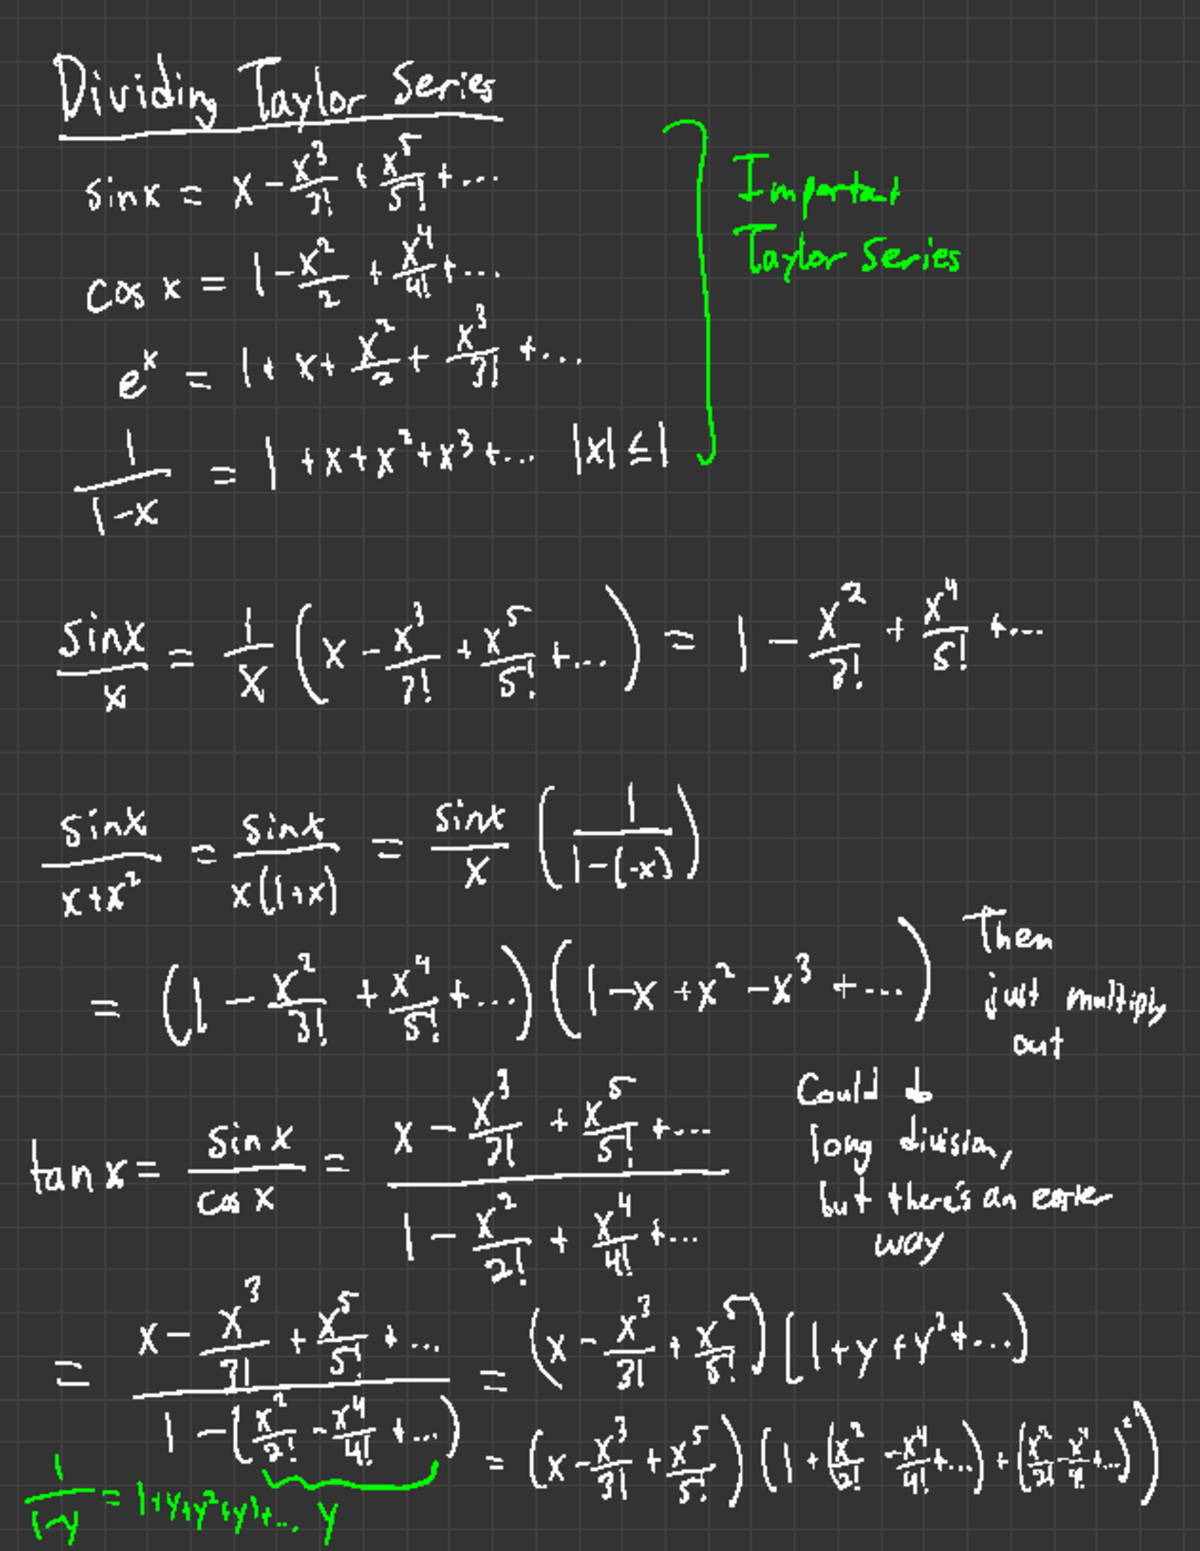 Dividing Taylor Series
sinx = x - x³/3! + x⁵/5! + ...
cos x = 1 - x²/2 + x⁴/4! + ...
eˣ = 1 + x + x²/2 + x³/3! + ...
1/(1-x) = 1 + x + x² + x³ + ... |x| ≤ 1
Important
Taylor Series
sinx/x = 1/x (x - x³/3! + x⁵/5! + ...) = 1 - x²/3! + x⁴/5! + ...
sinx/(x+x²) = sinx/(x(1+x)) = sinx/x (1/(1-(-x)))
= (1 - x²/3! + x⁴/5! + ...)(1 - x + x² - x³ + ...)
Then
just multiply
out
tan x = sin x/cos x = (x - x³/3! + x⁵/5! + ...)/(1 - x²/2! + x⁴/4! + ...)
Could do
long division,
but there's an easier
way
= (x - x³/3! + x⁵/5! + ...)/(1 - (x²/2! - x⁴/4! + ...)) = (x - x³/3! + x⁵/5!)[1 + y + y² + ...)
= (x - x³/3! + x⁵/5!)(1 + (x²/2! - x⁴/4! + ...) + (x²/2! - x⁴/4! + ...)²)
1/(1-y) = 1 + y + y² + y³ + ... y